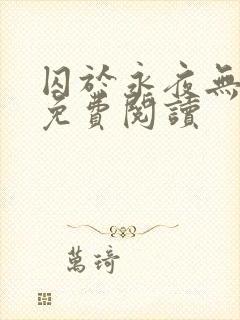 囚於永夜無
免費閱讀
萬琦